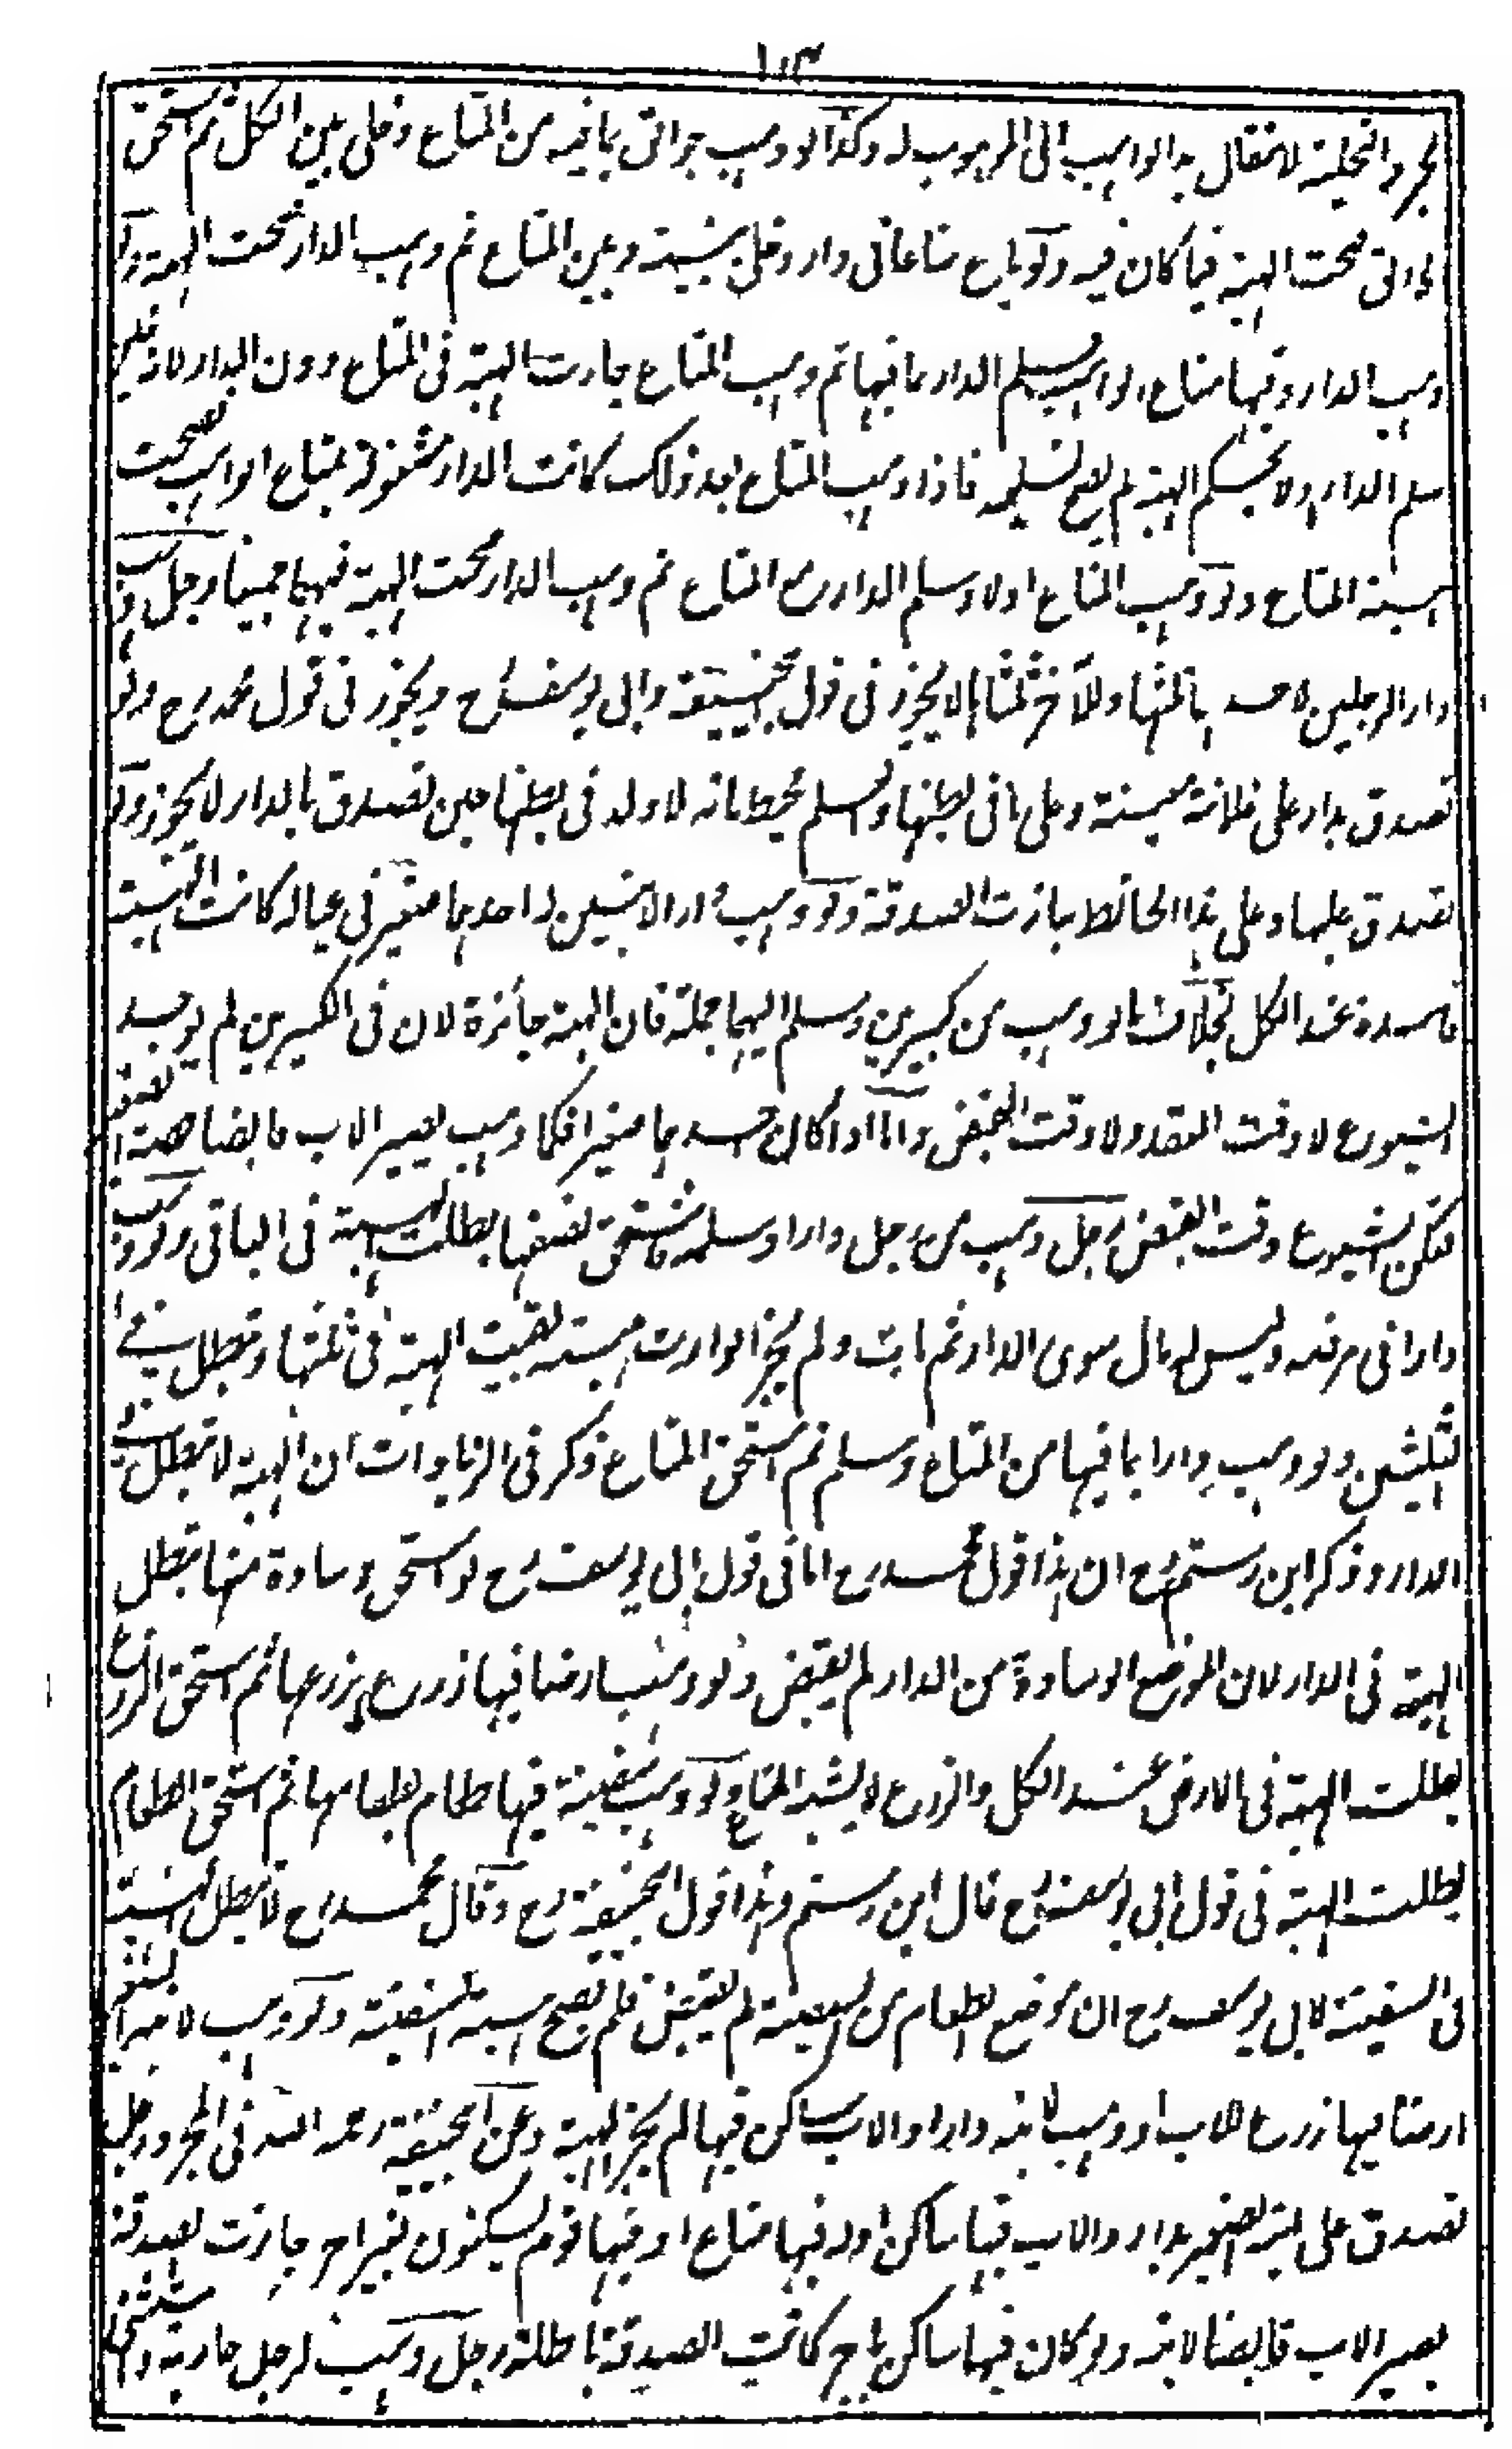 ١١٣
بمجرد التخلية لا تنقال يد الواهب الى الموهوب له وكذا لو وهب جوالق بما فيه من المتاع وخلى بين الكل ثم استحق
الجوالق صحت الهبة فيما كان فيه ولو باع متاعا فى دار وخلى بينه وبين المتاع ثم وهب الدار صحت الهبة ولو
وهب الدار وفيها متاع الواهب وسلم الدار بما فيها ثم وهب المتاع جازت الهبة فى المتاع دون الدار لانه حين
سلم الدار اولا بحكم الهبة لم يصح تسليمه فاذا وهب المتاع بعد ذلك كانت الدار مشغولة بمتاع الواهب فصحت
هبة المتاع ولو وهب المتاع اولا وسلم الدار مع المتاع ثم وهب الدار صحت الهبة فيهما جميعا رجل وهب
دارا لرجلين لاحدهما ثلثها وللآخر ثلثاها لا يجوز فى قول ابيحنيفة وابى يوسف رح ويجوز فى قول محمد رح ولو
تصدق بدار على فلانة معينة وعلى ما فى بطنها وسلم يحيط انه لا ولد فى بطنها حين تصدق بالدار لا يجوز ولو
تصدق عليها وعلى هذا الحائط جازت الصدقة ولو وهب دارا لابنين له احدهما صغير فى عياله كانت الهبة
فاسدة عند الكل بخلاف ما لو وهب من كبيرين وسلم اليهما جملة فان الهبة جائزة لان فى الكبيرين لم يوجد
الشيوع لا وقت العقد ولا وقت القبض واما اذا كان احدهما صغيرا فكما وهب يصير الاب قابضا حصة الصغير
فتمكن الشيوع وقت القبض رجل وهب من رجل دارا وسلمه فاستحق نصفها بطلت الهبة فى الباقى ولو وهب
دارا فى مرضه وليس له مال سوى الدار ثم مات ولم يجز الوارث هبته بقيت الهبة فى ثلثها وتبطل فى
الثلثين ولو وهب دارا بما فيها من المتاع وسلم ثم استحق المتاع ذكر فى الزيادات ان الهبة لا تبطل فى
الدار وذكر ابن رستم رح ان هذا قول محمد رح اما فى قول ابى يوسف رح لو استحق وسادة منها تبطل
الهبة فى الدار لان الموضع الوسادة من الدار لم يقبض ولو وهب ارضا فيها زرع بزرعها ثم استحق الزرع
بطلت الهبة فى الارض عند الكل والزرع لا يشبه المتاع ولو وهب سفينة فيها طعام بطعامها ثم استحق الطعام
بطلت الهبة فى قول ابى يوسف رح قال ابن رستم وهذا قول ابيحنيفة رح وقال محمد رح لا تبطل الهبة
فى السفينة لابى يوسف رح ان موضع الطعام من السفينة لم يقبض فلم تصح هبة السفينة ولو وهب لابنه الصغير
ارضا فيها زرع للاب او وهب لابنه دارا والاب ساكن فيها لم يجز الهبة وعن ابيحنيفة رحمه الله فى المجرد رجل
تصدق على ابنه الصغير بدار والاب فيها ساكن او له فيها متاع او فيها قوم يسكنون بغير اجر جازت الصدقة
يصير الاب قابضا لابنه ولو كان فيها ساكن باجر كانت الصدقة باطلة رجل وهب لرجل جارية واستثنى